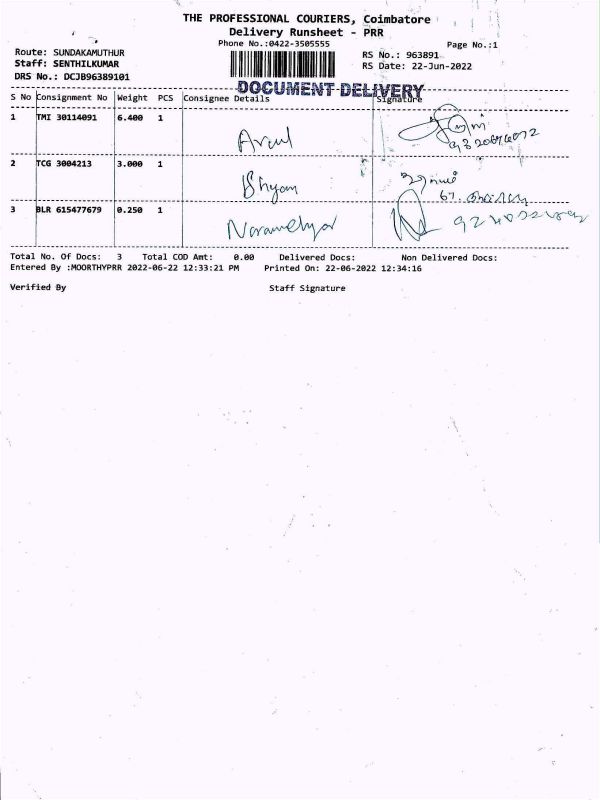 THE PROFESSIONAL COURIERS, Coimbatore
Delivery Runsheet - PRR
Phone No.:0422-3505555
Page No.:1
Route: SUNDAKAMUTHUR
RS No.: 963891
Staff: SENTHILKUMAR
RS Date: 22-Jun-2022
DRS No.: DCJB96389101
DOCUMENT DELIVERY
S No Consignment No Weight PCS Consignee Details Signature
1 TMI 30114091 6.400 1
Arul
2 TCG 3004213 3.000 1
Shyam
3 BLR 615477679 0.250 1
Total No. Of Docs: 3 Total COD Amt: 0.00 Delivered Docs: Non Delivered Docs:
Entered By :MOORTHYPRR 2022-06-22 12:33:21 PM Printed On: 22-06-2022 12:34:16
Verified By Staff Signature